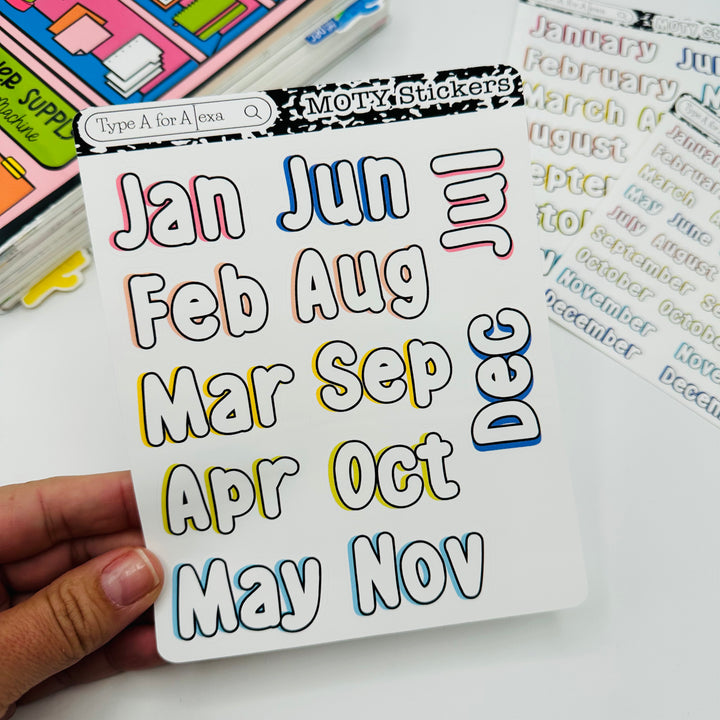 ER SUPPL
Machine
Type A for Alexa
MOTY Stickers
Jan Jun Jul
Feb Aug
Mar Sep Dec
Apr Oct
May Nov
Type A for Alexa
MOTY
January
February
March
August
November
December
January
February
March
May June
July August
September
October
November
December